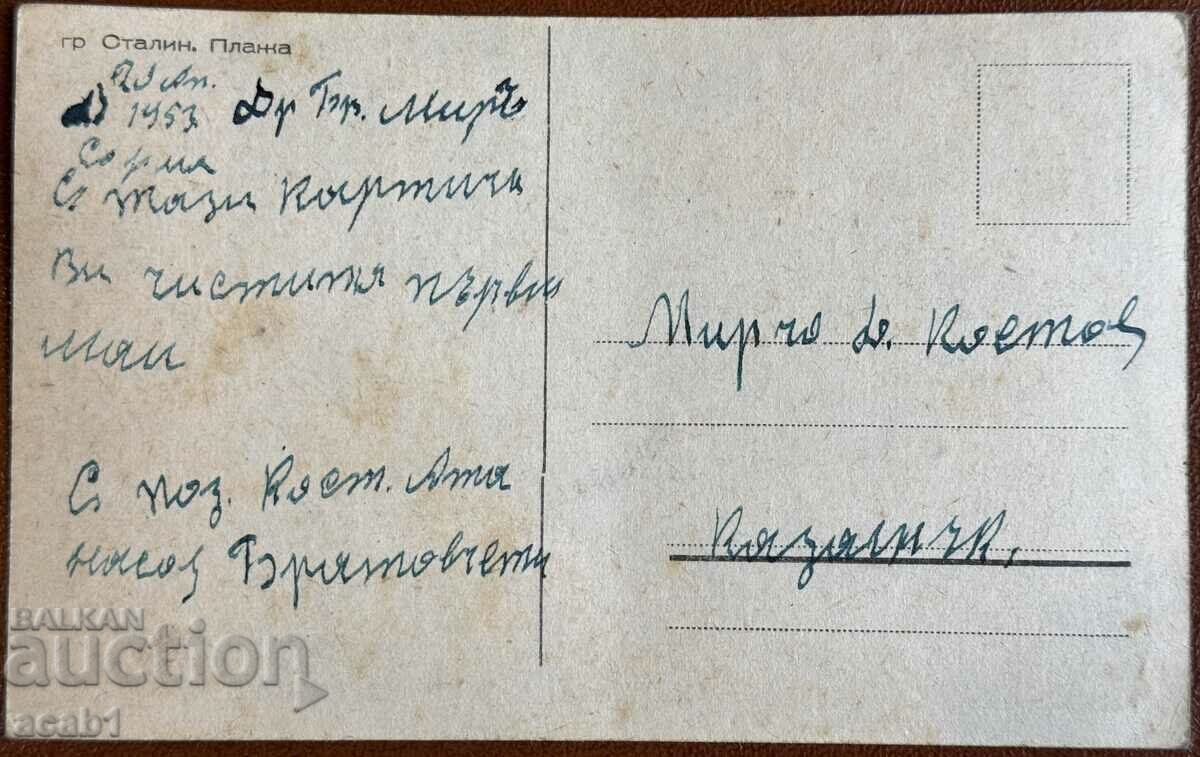 гр Сталин. Плажа
Ап.
1953 Др Бр. Миръ
София
С тази картичк
Ви чиститя първи
маи
С поз. Кост. Ата
насов Братовчети
Мирчо Д. Костов
Казанлък.
BALKAN
auction
acab1